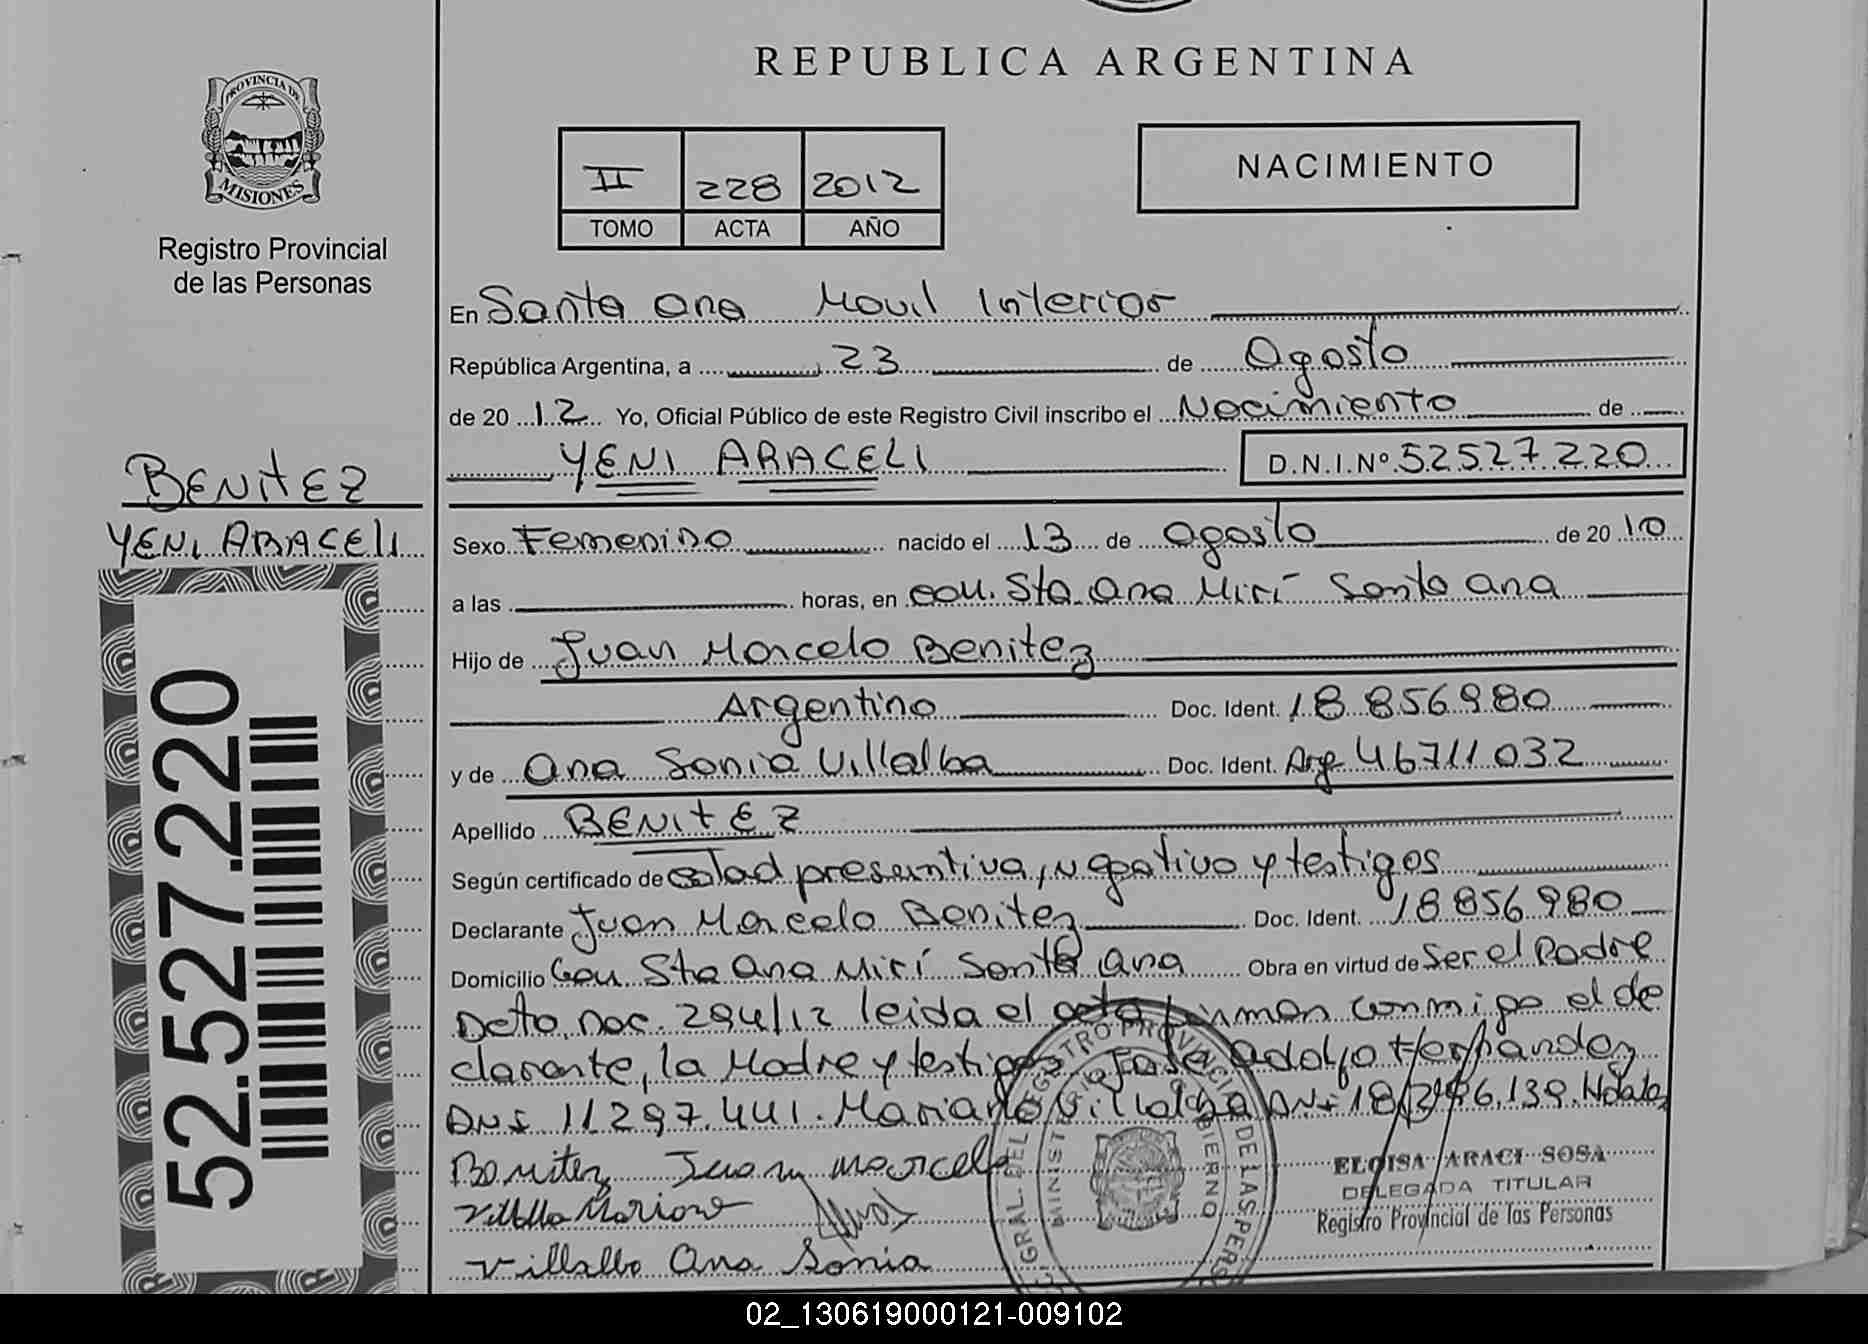 REPUBLICA ARGENTINA
PROVINCIA DE
MISIONES
Registro Provincial
de las Personas
II 228 2012
TOMO ACTA AÑO
NACIMIENTO
En Santa Ana Movil Interior
República Argentina, a 23 de Agosto
de 20 12 Yo, Oficial Público de este Registro Civil inscribo el Nacimiento de
YENI ARACELI D.N.I.Nº 52527220
BENITEZ
YENI ARACELI
52.527.220
Sexo Femenino nacido el 13 de Agosto de 20 10
a las horas, en Com. Sta Ana Mirí Santa Ana
Hijo de Juan Marcelo Benitez
Argentino Doc. Ident. 18.856980
y de Ana Sonia Villalba Doc. Ident. Arg 46711032
Apellido BENITEZ
Según certificado de edad presuntiva, negativo y testigos
Declarante Juan Marcelo Benitez Doc. Ident. 18856980
Domicilio Com Sta Ana Mirí Santa Ana Obra en virtud de Ser el Padre
Dcto nac. 294/12 leida el acta firman conmigo el de
clarante, la Madre y testigos José Adolfo Hernandez
DNI 11297.441. Mariano Villalba DNI 18
Benitez Juan Marcelo
Villalba Mariano
Villalba Ana Sonia
ELOISA ARACI SOSA
DELEGADA TITULAR
Registro Provincial de las Personas
02_130619000121-009102